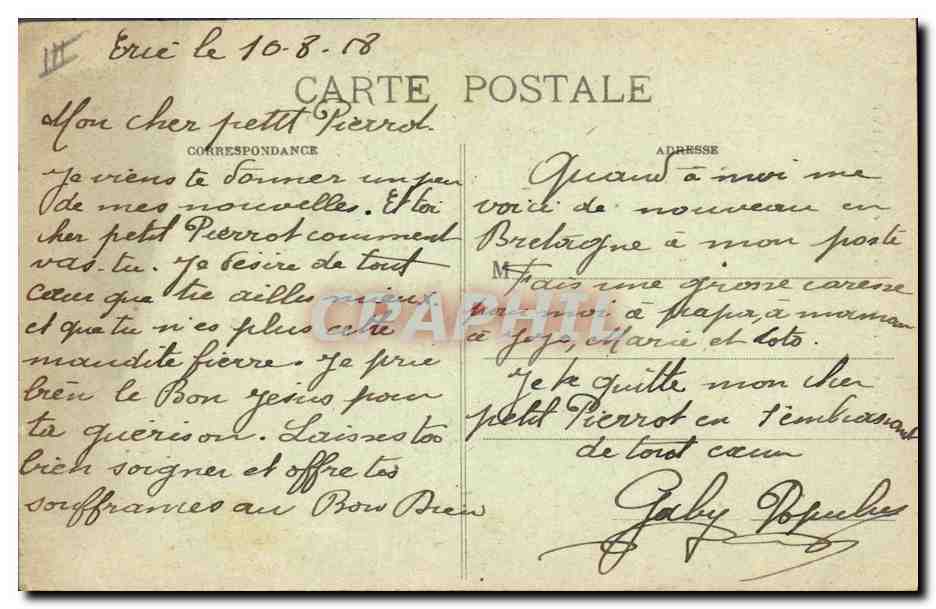 III
le 10-8-18
CARTE POSTALE
Mon cher petit Pierrot.
CORRESPONDANCE
Je viens te donner un peu
de mes nouvelles. Et toi
cher petit Pierrot comment
vas-tu. Je désire de tout
cœur que tu ailles mieux
et que tu n'es plus cette
maudite fièrre. Je prie
bien le Bon Jésus pour
ta guérison. Laisses toi
bien soigner et offre tes
souffrances au Bon Dieu
ADRESSE
Quand à moi me
voici de nouveau en
Bretagne à mon poste
M
Fais une grosse caresse
pour moi à papa, à maman
à Jojo, Marie et Loto.
Je te quitte mon cher
petit Pierrot en t'embrassant
de tout cœur
Gaby
CRAPHIL